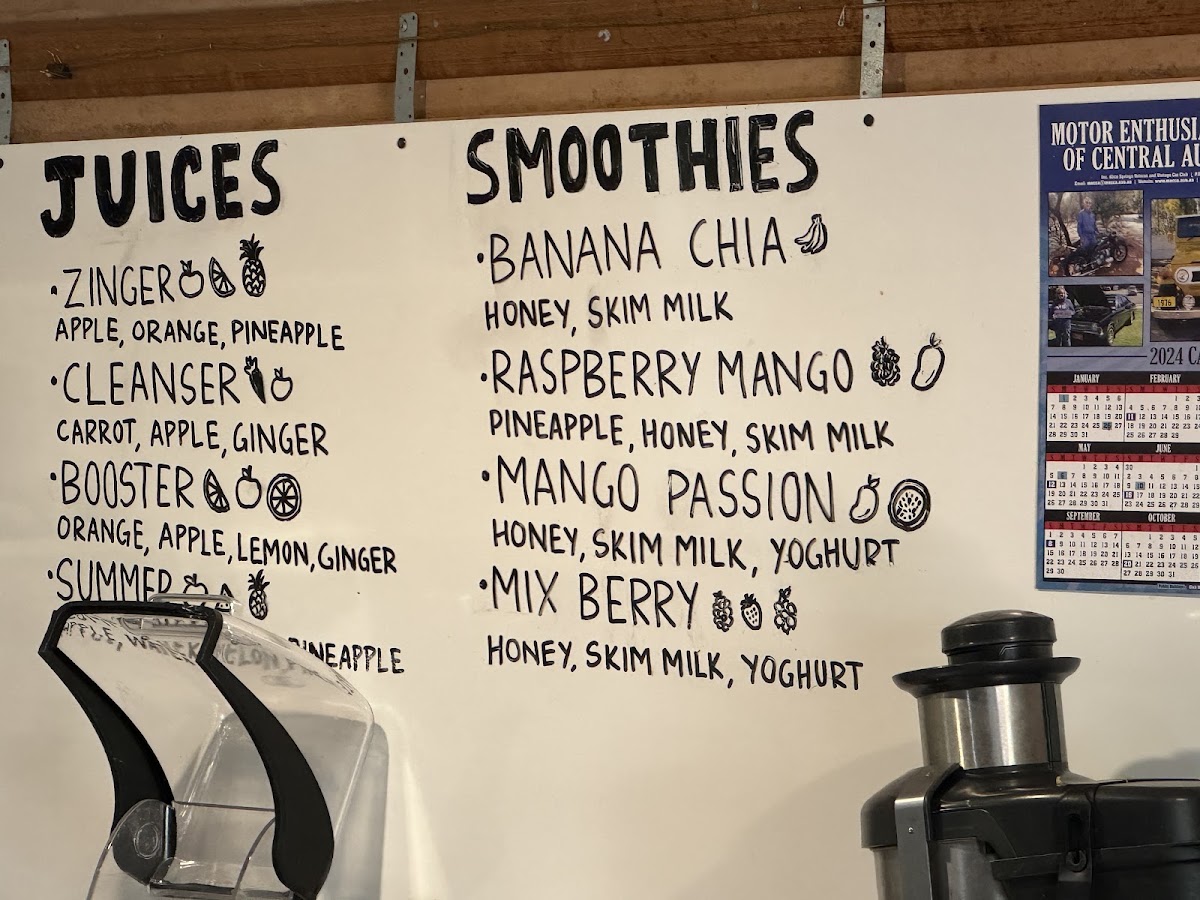 JUICES
·ZINGER
APPLE, ORANGE, PINEAPPLE
·CLEANSER
CARROT, APPLE, GINGER
·BOOSTER
ORANGE, APPLE, LEMON, GINGER
·SUMMER
APPLE, PINEAPPLE
SMOOTHIES
·BANANA CHIA
HONEY, SKIM MILK
·RASPBERRY MANGO
PINEAPPLE, HONEY, SKIM MILK
·MANGO PASSION
HONEY, SKIM MILK, YOGHURT
·MIX BERRY
HONEY, SKIM MILK, YOGHURT
MOTOR
OF CENTRAL
2024
JANUARY FEBRUARY
MAY JUNE
SEPTEMBER OCTOBER